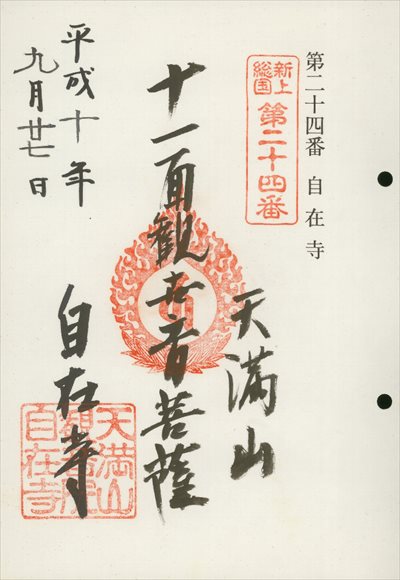 第二十四番 自在寺
新上
総国
第二十四番
天満山
十一面観世音菩薩
自在寺
平成十年
九月廿七日
天満山
自在寺